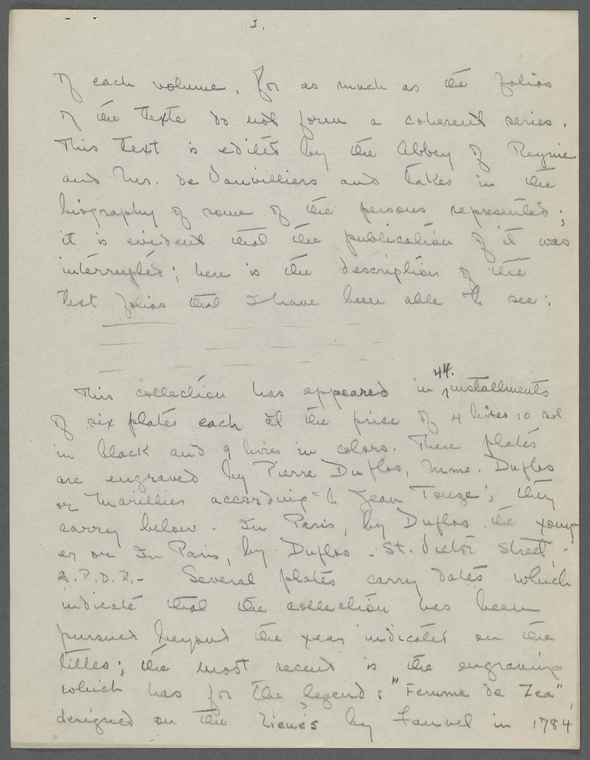 3.
of each volume, for as much as the folios
of the texte do not form a coherent series.
This text is edited by the Abbey of Regnie
and Mrs. de Vauvilliers and takes in the
biography of some of the persons represented;
it is evident that the publication of it was
interrupted; here is the description of the
text folios that I have been able to see:
This collection has appeared in 44. installments
of six plates each at the price of 4 livres 10 sol
in black and 9 livres in colors. These plates
are engraved by Pierre Duflos, Mme. Duflos
or Marillier according to Jean Touze'; they
carry below - In Paris, by Duflos the young
er or In Paris, by Duflos - St. Victor Street, -
A.P.D.R. - Several plates carry dates which
indicate that the collection has been
pursued beyond the year indicated on the
titles; the most recent is the engraving
which has for the legend: "Femme de Zea",
designed on the by Fauvel in 1784